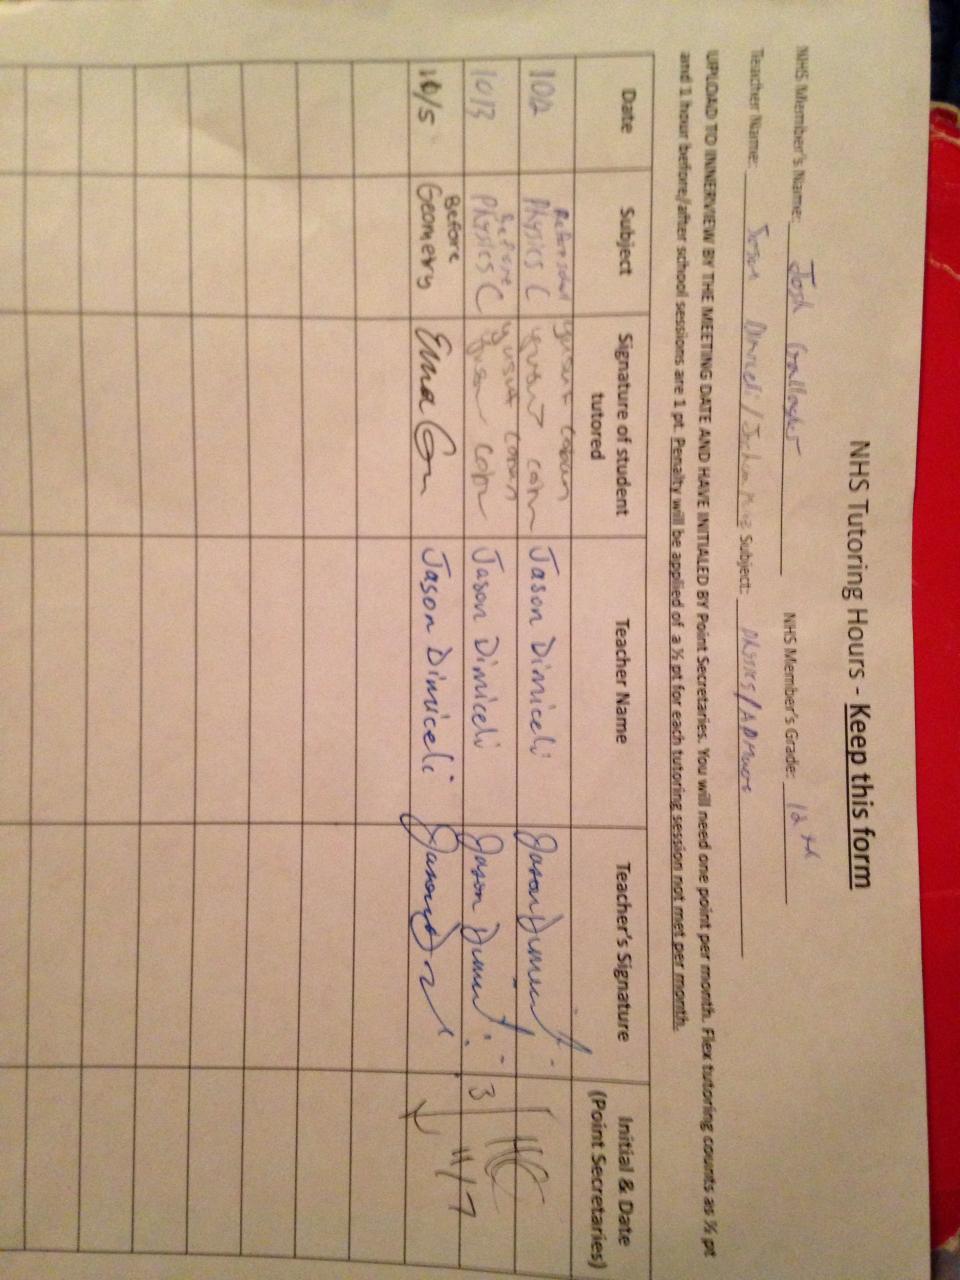 NHS Tutoring Hours - Keep this form
NHS Member's Name: Josh Gallagher NHS Member's Grade: 12th
Teacher Name: Jason Dimiceli / Subject: Physics/AP
UPLOAD TO INNERVIEW BY THE MEETING DATE AND HAVE INITIALED BY Point Secretaries. You will need one point per month. Flex tutoring counts as ½ pt
and 1 hour before/after school sessions are 1 pt. Penalty will be applied of a ½ pt for each tutoring session not met per month.
Date Subject Signature of student tutored Teacher Name Teacher's Signature Initial & Date (Point Secretaries)
10/2 Before school Physics C Jason Dimiceli Jason Dimiceli
10/3 Before Physics C Jason Dimiceli Jason Dimiceli 3
10/5 Before Geometry Jason Dimiceli 11/7